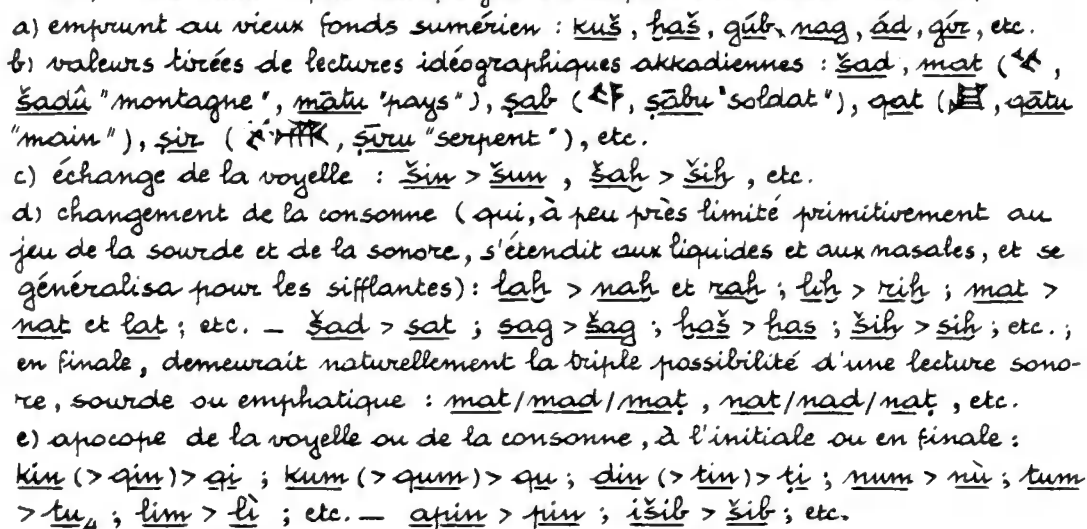 a) emprunt au vieux fonds sumérien : kuš, ḫaš, gúb, nag, ád, gír, etc.
b) valeurs tirées de lectures idéographiques akkadiennes : šad, mat (𒆳,
šadû "montagne", mātu "pays"), ṣab (𒂟, ṣābu "soldat"), qat (𒋗, qātu
"main"), ṣir (𒈲, ṣīru "serpent"), etc.
c) échange de la voyelle : šin > šun, šaḫ > šiḫ, etc.
d) changement de la consonne (qui, à peu près limité primitivement au
jeu de la sourde et de la sonore, s'étendit aux liquides et aux nasales, et se
généralisa pour les sifflantes) : laḫ > naḫ et raḫ ; liḫ > riḫ ; mat >
nat et lat ; etc. – šad > sat ; sag > šag ; ḫaš > ḫas ; šiḫ > siḫ ; etc. ;
en finale, demeurait naturellement la triple possibilité d'une lecture sono-
re, sourde ou emphatique : mat/mad/maṭ, nat/nad/naṭ, etc.
e) apocope de la voyelle ou de la consonne, à l'initiale ou en finale :
kin (> qin) > qi ; kum (> qum) > qu ; din (> tin) > ṭi ; num > nù ; tum
> tu₄ ; lim > lì ; etc. – apin > pin ; išib > šib ; etc.